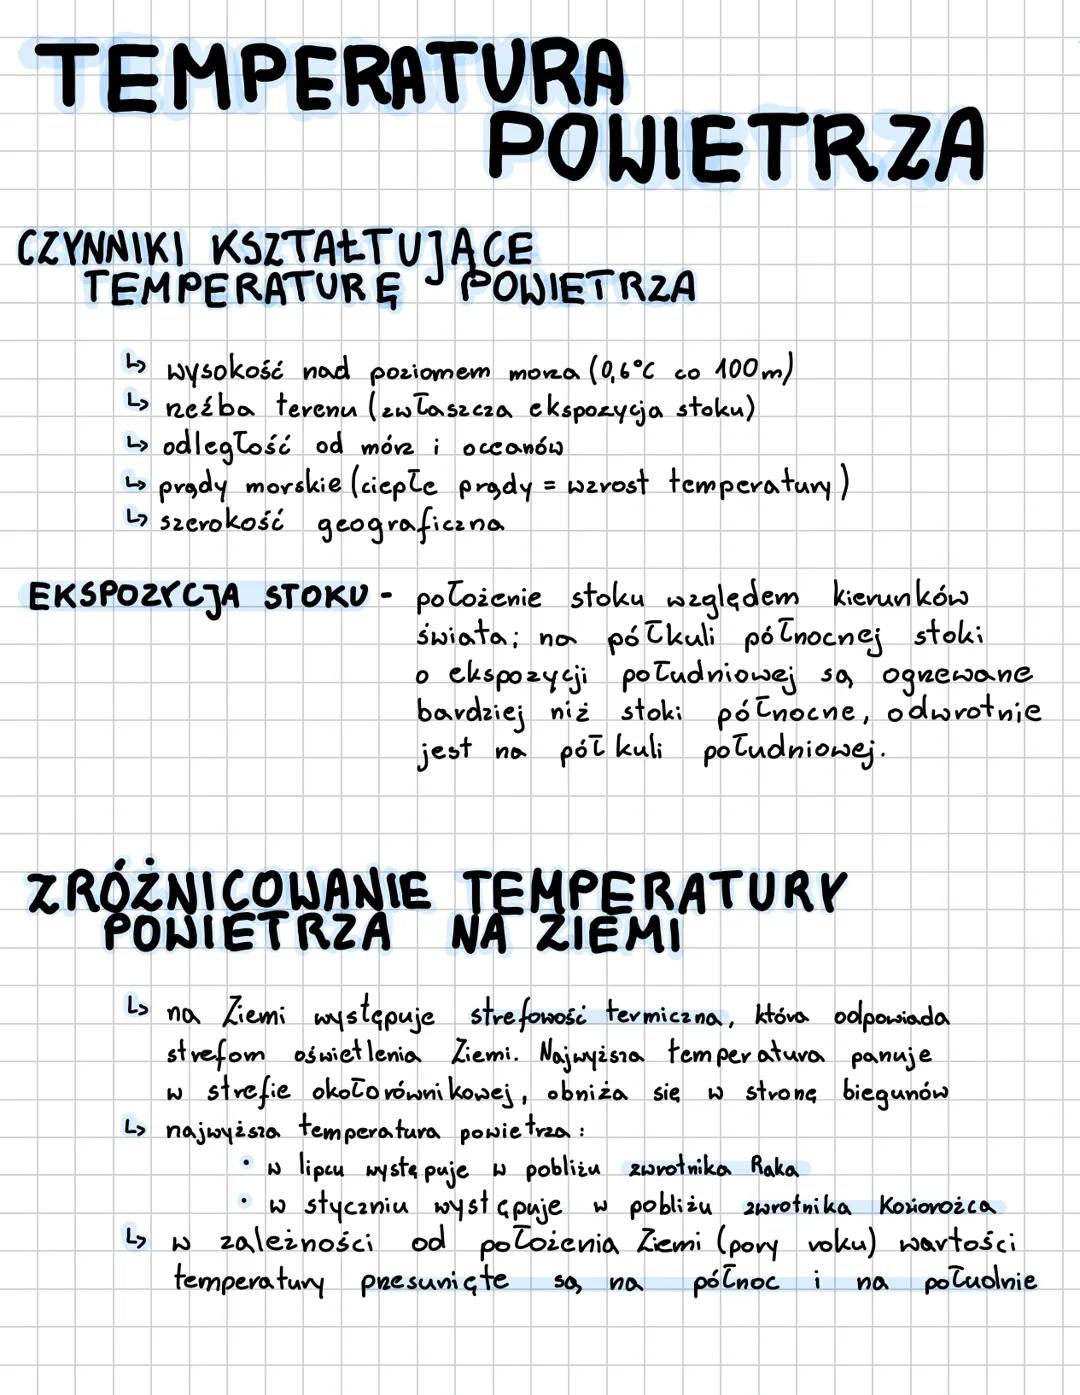 TEMPERATURA
POWIETRZA
CZYNNIKI KSZTAŁTUJĄCE
TEMPERATURĘ POWIETRZA
↳ wysokość nad poziomem morza (0,6°C co 100m)
↳ rzeźba terenu (zwłaszcza ekspozycja stoku)
↳ odległość od mórz i oceanów
↳ prądy morskie (ciepłe prądy = wzrost temperatury)
↳ szerokość geograficzna
EKSPOZYCJA STOKU - położenie stoku względem kierunków
świata; na półkuli północnej stoki
o ekspozycji południowej są ogrzewane
bardziej niż stoki północne, odwrotnie
jest na półkuli południowej.
ZRÓŻNICOWANIE TEMPERATURY
POWIETRZA NA ZIEMI
↳ na Ziemi występuje strefowość termiczna, która odpowiada
strefom oświetlenia Ziemi. Najwyższa temperatura panuje
w strefie okołorównikowej, obniża się w stronę biegunów
↳ najwyższa temperatura powietrza:
• w lipcu występuje w pobliżu zwrotnika Raka
• w styczniu występuje w pobliżu zwrotnika Koziorożca
↳ w zależności od położenia Ziemi (pory roku) wartości
temperatury przesunięte są na północ i na południe